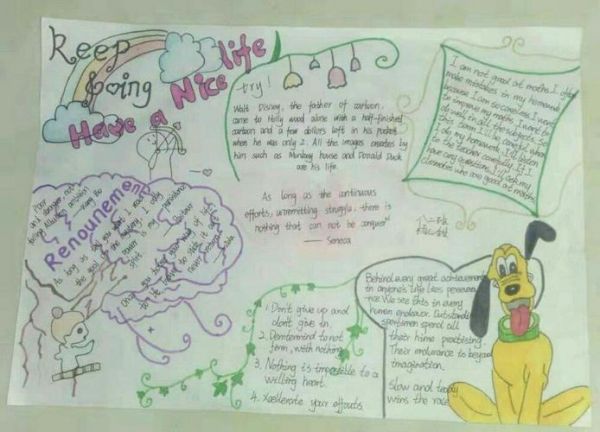 Keep
going
Have a Nice life
try!
Walt Disney, the father of cartoon,
came to Holly wood alone with a half-finished
cartoon and a few dollors left in his pocket
when he was only 2. All the images created by
him such as Monkey house and Donald Duck
are his life.
As long as the continuous
efforts, unremetting struggle, there is
nothing that can not be conquer
— Seneca
I am not good at maths. I often
make mistakes in my homework
because I am so careless. I want
to improve my maths. I want to
do well in all the subjects. So
this term I'll be careful when
I do my homework. I'll listen
to the teacher carefully. If I
have any question, I'll ask my
classmates who are good at maths.
Renounement
As long as
the goal of
power is my persistence
spirit
Pasteur
Once you
1. Don't give up and
dont give in.
2. Determined to not
firm, with nothing
3. Nothing is impossible to a
willing heart.
4. Xcellerate your effouts
Behind every great achievement
in anyone's life lies persevera
nce. We see this in every
human endeavor. Outstanding
sportsmen spend all
their time practising.
Their endurance is beyond
imagination.
Slow and teady
wins the race